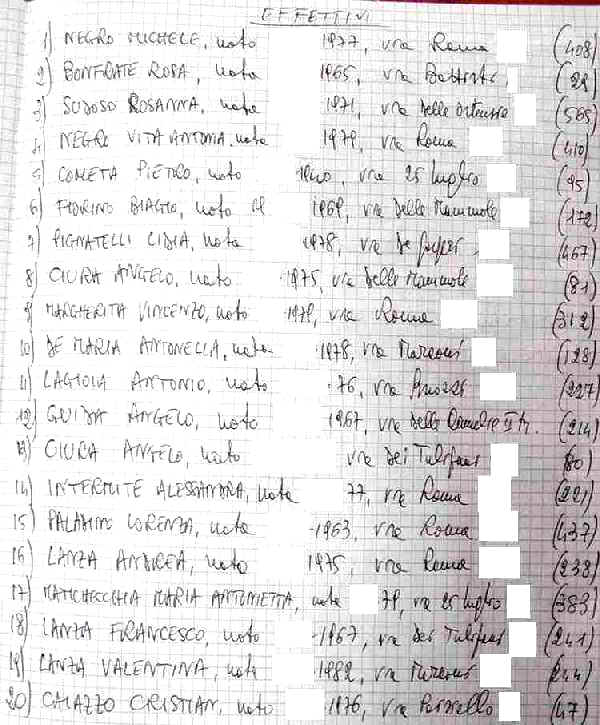 EFFETTIVI
1) NEGRO MICHELE, nato 1977, via Roma (408)
2) BONFRATE ROSA, nata 1965, via Battisti (29)
3) SUDOSO ROSANNA, nata 1971, via delle Ortensie (565)
4) NEGRO VITA ANTONIA, nata 1979, via Roma (410)
5) COMETA PIETRO, nato via 25 luglio (95)
6) FIORINO BIAGIO, nato il 1969, via delle Mammole (172)
7) PIGNATELLI LIDIA, nata 1978, via De (467)
8) CIURA ANGELO, nato 1975, via delle Mammole (81)
9) MARGHERITA VINCENZO, nato 1979, via Roma (312)
10) DE MARIA ANTONELLA, nata 1978, via Marconi (128)
11) LAGIOIA ANTONIO, nato 76, via (227)
12) GUIDA ANGELO, nato 1967, via delle (214)
13) CIURA ANGELO, nato via dei Tulipani (80)
14) INTERMITE ALESSANDRA, nata 77, via Roma (221)
15) PALAMINO LORENZA, nata 1963, via Roma (437)
16) LANZA ANDREA, nato 1975, via Roma (238)
17) MARIA ANTONIETTA, nata 79, via 25 luglio (383)
18) LANZA FRANCESCO, nato 1967, via dei Tulipani (241)
19) LANZA VALENTINA, nata 1982, via Marconi (244)
20) CAIAZZO CRISTIAN, nato 1976, via (47)